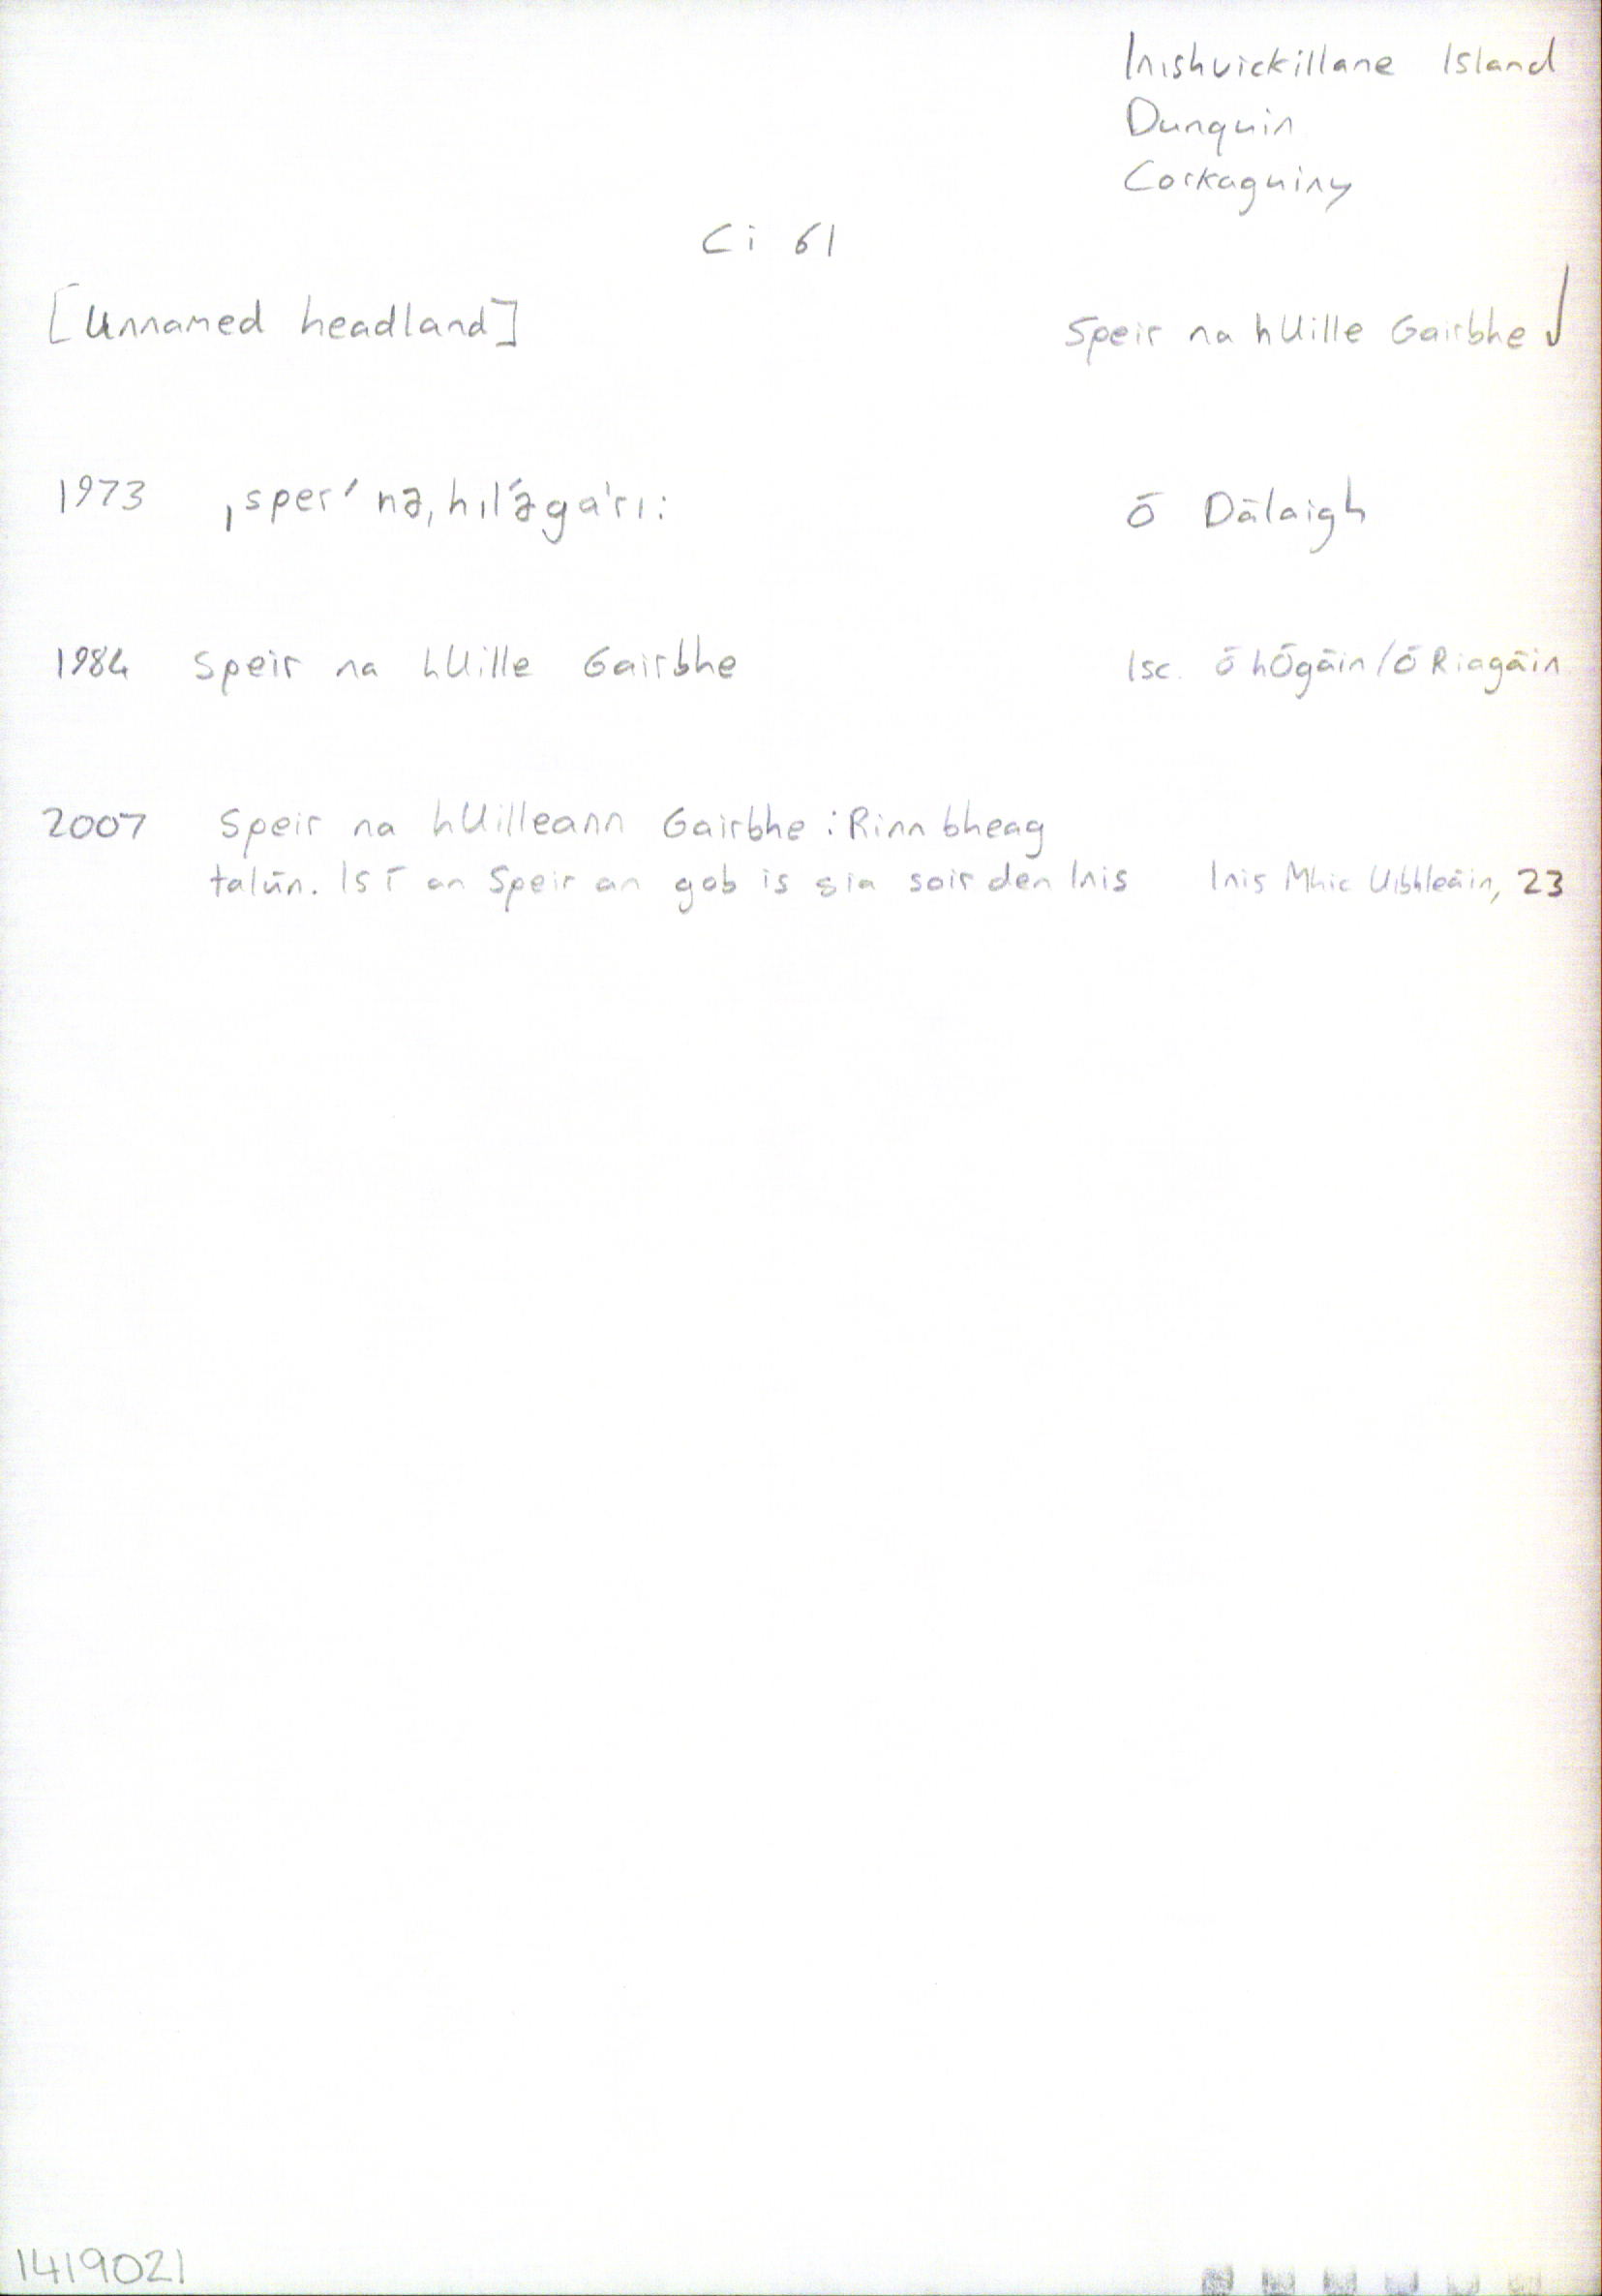 Inishvickillane Island
Dunquin
Corkaguiny
Ci 61
[Unnamed headland] Speir na hUille Gairbhe √
1973 ˌsper′ nəˌhıl′əga'rı: Ó Dálaigh
1984 Speir na hUille Gairbhe Isc. Ó hÓgáin/Ó Riagáin
2007 Speir na hUilleann Gairbhe: Rinn bheag
talún. Is í an Speir an gob is sia soir den Inis Inis Mhic Uibhleáin, 23
1419021